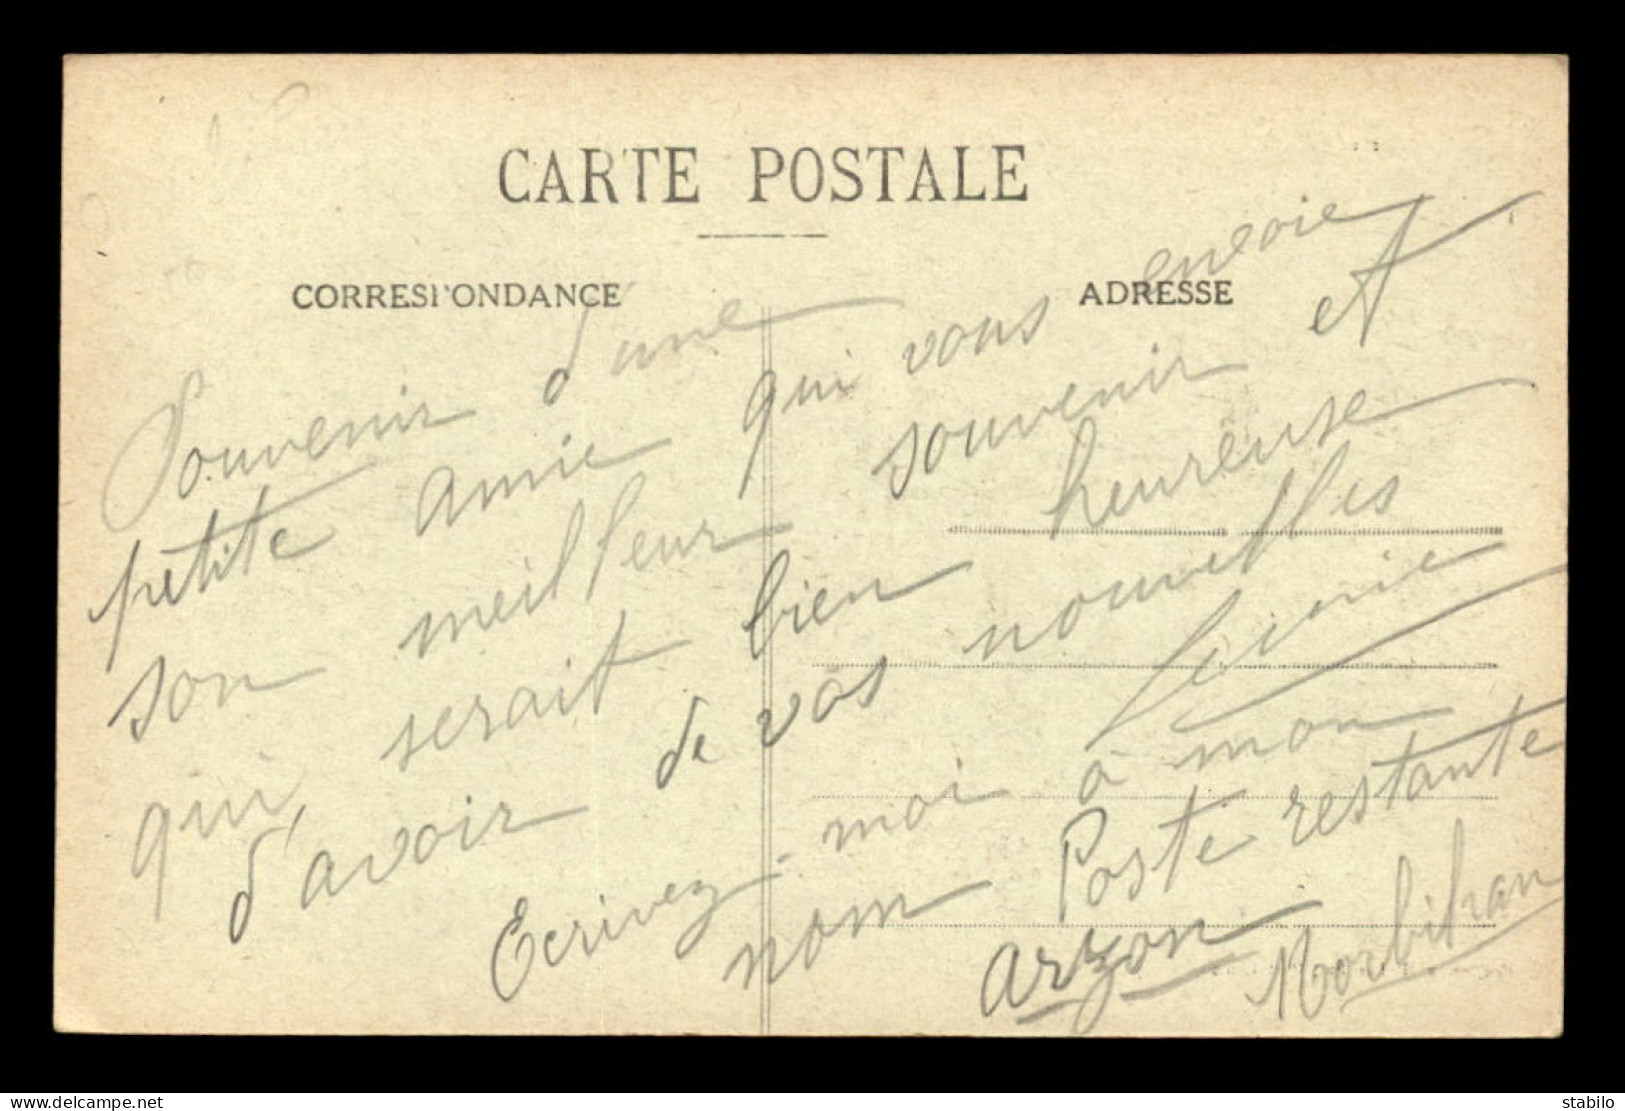 CARTE POSTALE
CORRESPONDANCE
ADRESSE
Souvenir d'une
petite amie qui vous envoie
son meilleur souvenir et
qui serait bien heureuse
d'avoir de vos nouvelles
Ecrivez-moi à mon
nom Poste restante
Arzon Morbihan
www.delcampe.net
stabilo